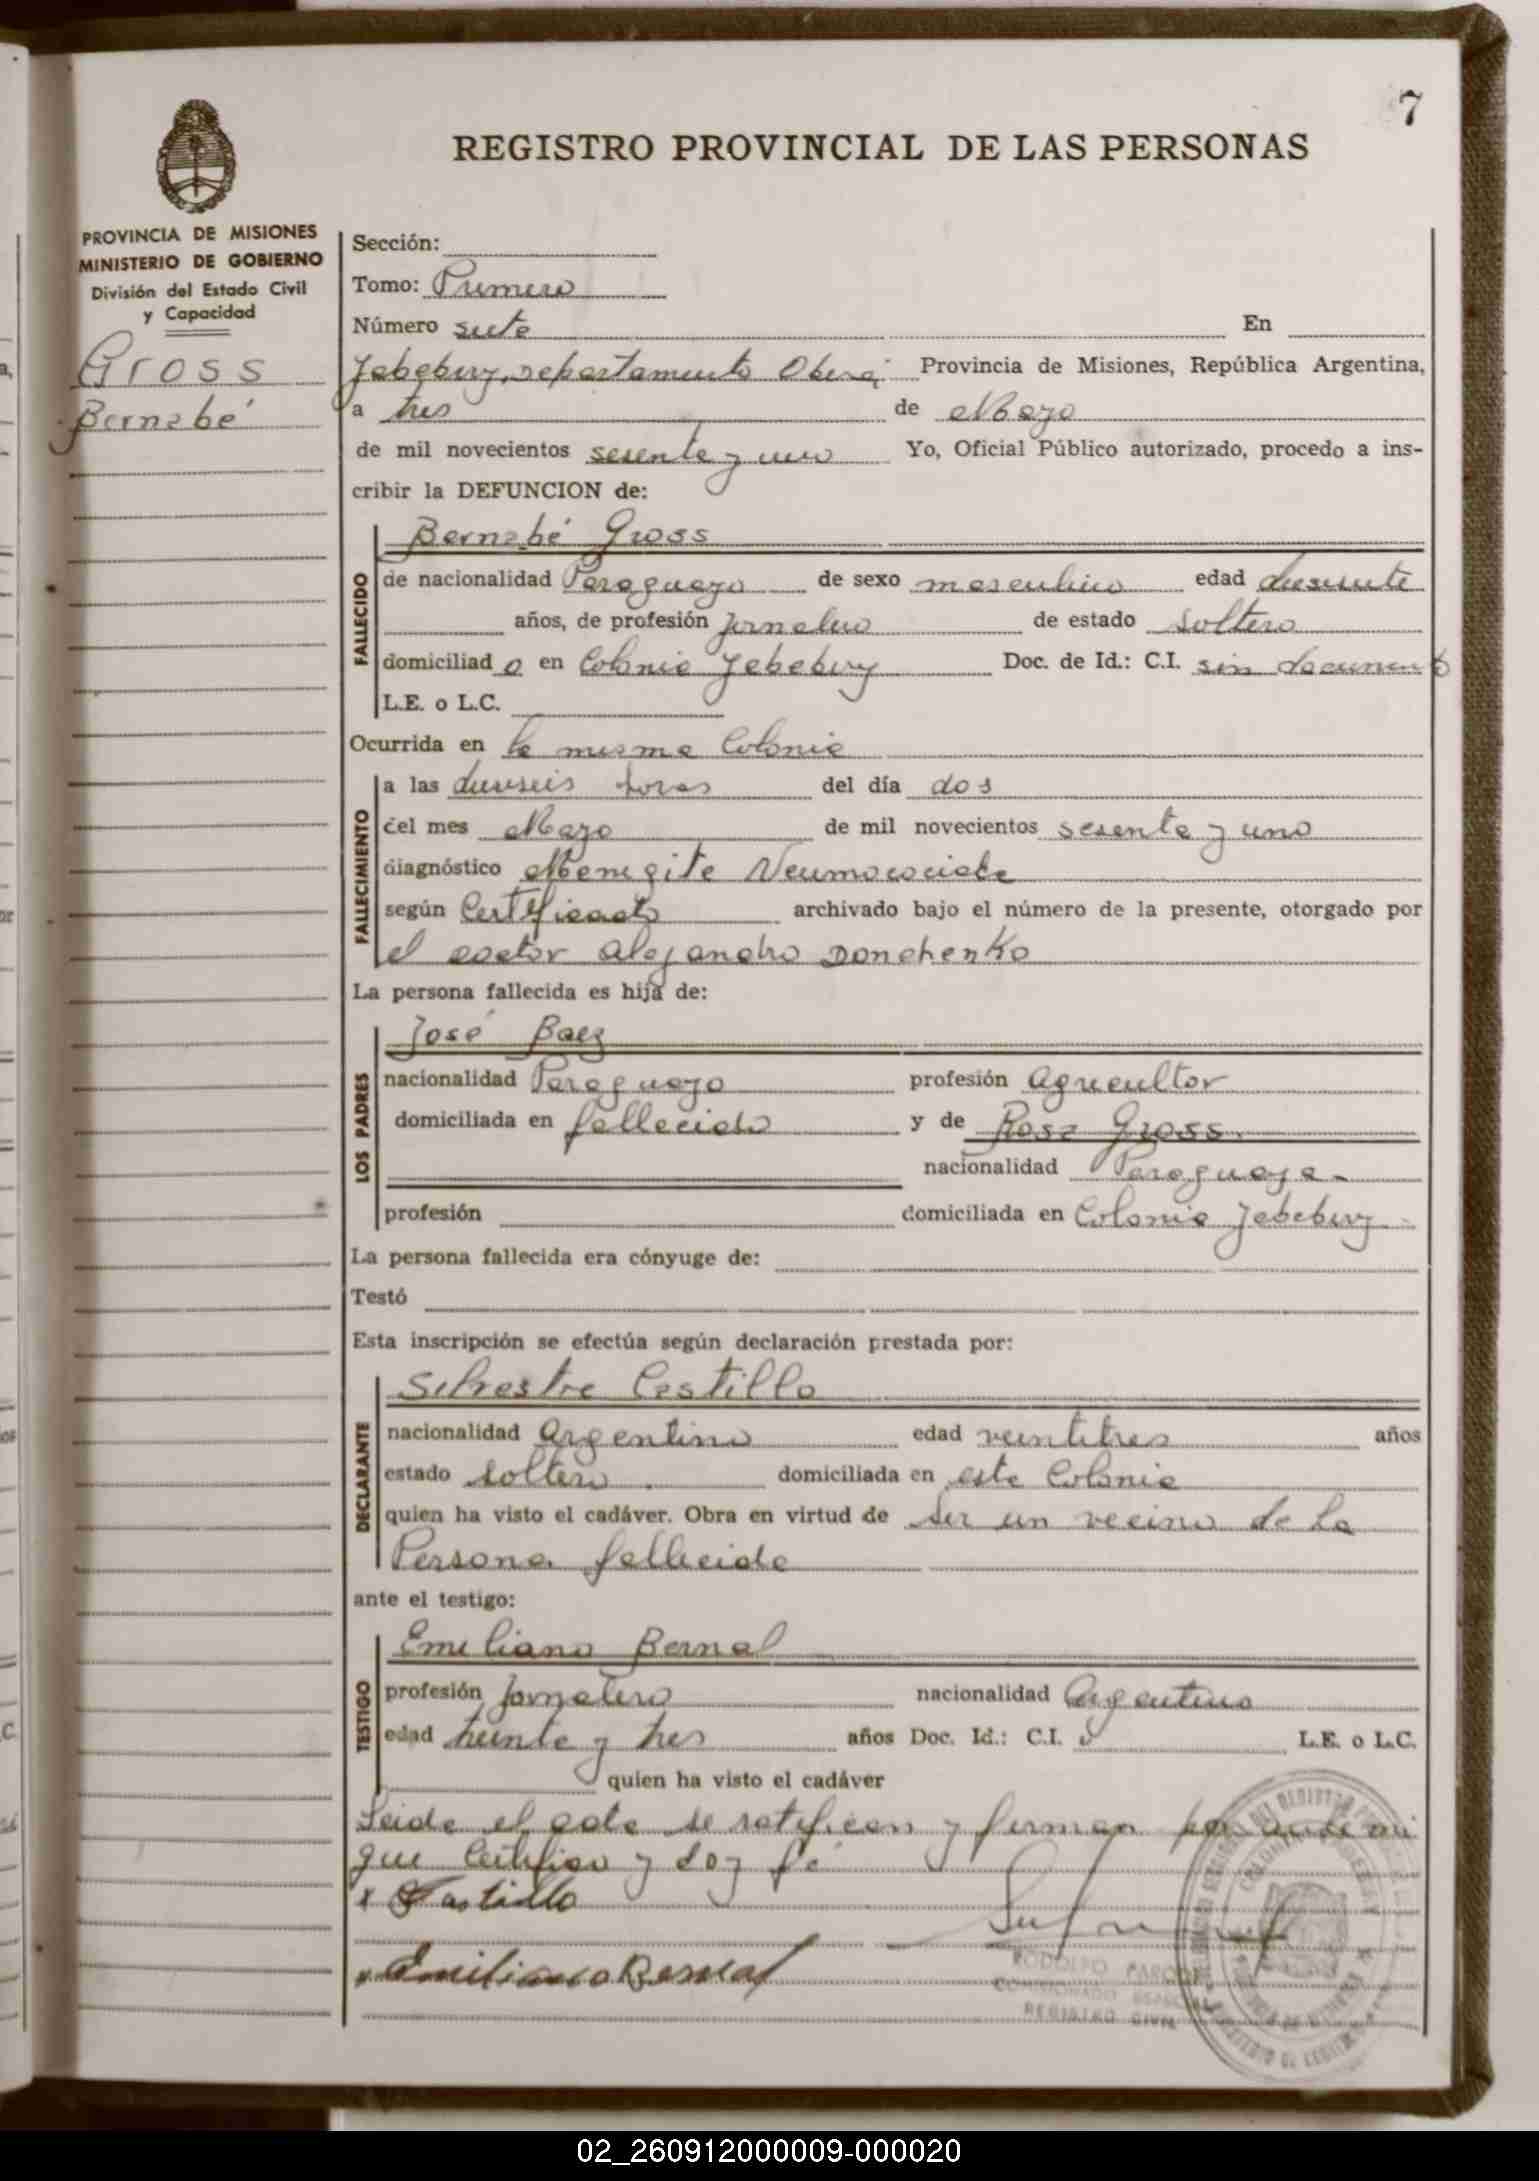 7
REGISTRO PROVINCIAL DE LAS PERSONAS
PROVINCIA DE MISIONES
MINISTERIO DE GOBIERNO
División del Estado Civil
y Capacidad
Gross
Bernabé
Sección:
Tomo: Primero
Número siete En
Jebebiry, Departamento Oberá Provincia de Misiones, República Argentina,
a tres de Mayo
de mil novecientos sesenta y uno Yo, Oficial Público autorizado, procedo a ins-
cribir la DEFUNCION de:
Bernabé Gross
FALLECIDO
de nacionalidad Paraguayo de sexo masculino edad
años, de profesión Jornalero de estado soltero
domiciliado en Colonia Jebebiry Doc. de Id.: C.I. sin documento
L.E. o L.C.
Ocurrida en la misma Colonia
FALLECIMIENTO
a las dieciseis horas del día dos
del mes Mayo de mil novecientos sesenta y uno
diagnóstico Menigite Neumococica
según Certificado archivado bajo el número de la presente, otorgado por
el doctor Alejandro Donchenko
La persona fallecida es hija de:
LOS PADRES
José Baez
nacionalidad Paraguayo profesión Agricultor
domiciliada en fallecido y de Rosa Gross.
nacionalidad Paraguaya-
profesión domiciliada en Colonia Jebebiry
La persona fallecida era cónyuge de:
Testó
Esta inscripción se efectúa según declaración prestada por:
DECLARANTE
Silvestre Castillo
nacionalidad Argentino edad veintitres años
estado soltero domiciliada en esta Colonia
quien ha visto el cadáver. Obra en virtud de ser un vecino de la
Persona fallecida
ante el testigo:
TESTIGO
Emiliano Bernal
profesión Jornalero nacionalidad Argentino
edad treinta y tres años Doc. Id.: C.I. L.E. o L.C.
quien ha visto el cadáver
Leida el acta se ratifican y firman por ante mi
que Certifico y doy fé
x Castillo
x Emiliano Bernal
RODOLFO
COMISIONADO
REGISTRO CIVIL
02_260912000009-000020